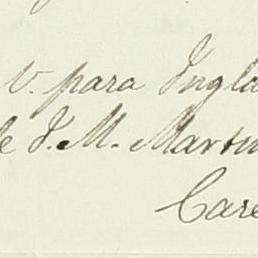 V. para Ingla
de J. M. Martin
Care